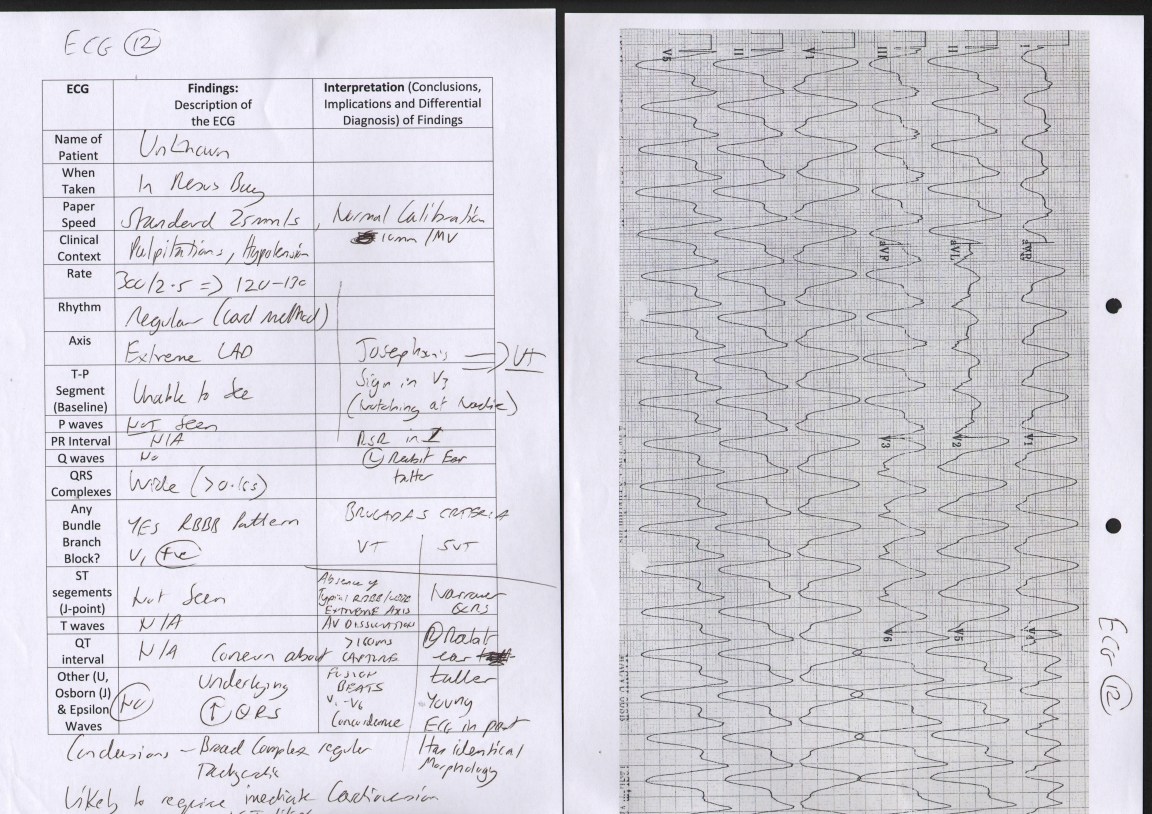 ECG 12
ECG
Findings:
Description of
the ECG
Interpretation (Conclusions,
Implications and Differential
Diagnosis) of Findings
Name of
Patient
Unknown
When
Taken
In Resus Bay
Paper
Speed
Standard 25mm/s, Normal Calibration
10mm/MV
Clinical
Context
Palpitations, Hypotension
Rate
300/2.5 => 120-130
Rhythm
Regular (Card method)
Axis
Extreme LAD
Josephson's => VT
Sign in V3
(Notching at Nadir)
T-P
Segment
(Baseline)
Unable to See
P waves
Not Seen
PR Interval
N/A
RSR in I
Q waves
No
(L) Rabbit Ear
taller
QRS
Complexes
Wide (>0.16s)
Any
Bundle
Branch
Block?
YES RBBB Pattern
V1 +ve
BRUGADAS CRITERIA
VT
SVT
ST
segements
(J-point)
Not Seen
Absence of
Typical RBBB/LBBB
EXTREME AXIS
Narrower
QRS
T waves
N/A
AV DISSOCIATION
QT
interval
N/A
Concern about
>160ms
CAPTURE
(R) Rabbit
ear
taller
Other (U,
Osborn (J)
& Epsilon
Waves
No
Underlying
↑ QRS
FUSION
BEATS
V1-V6
Concordance
Young
ECG in past
Has identical
Morphology
Conclusions - Broad Complex regular
Tachycardia
Likely to require imediate Cardioversion
I
II
III
V1
II
V5
aVR
aVL
aVF
V1
V2
V3
V4
V5
V6
ECG 12